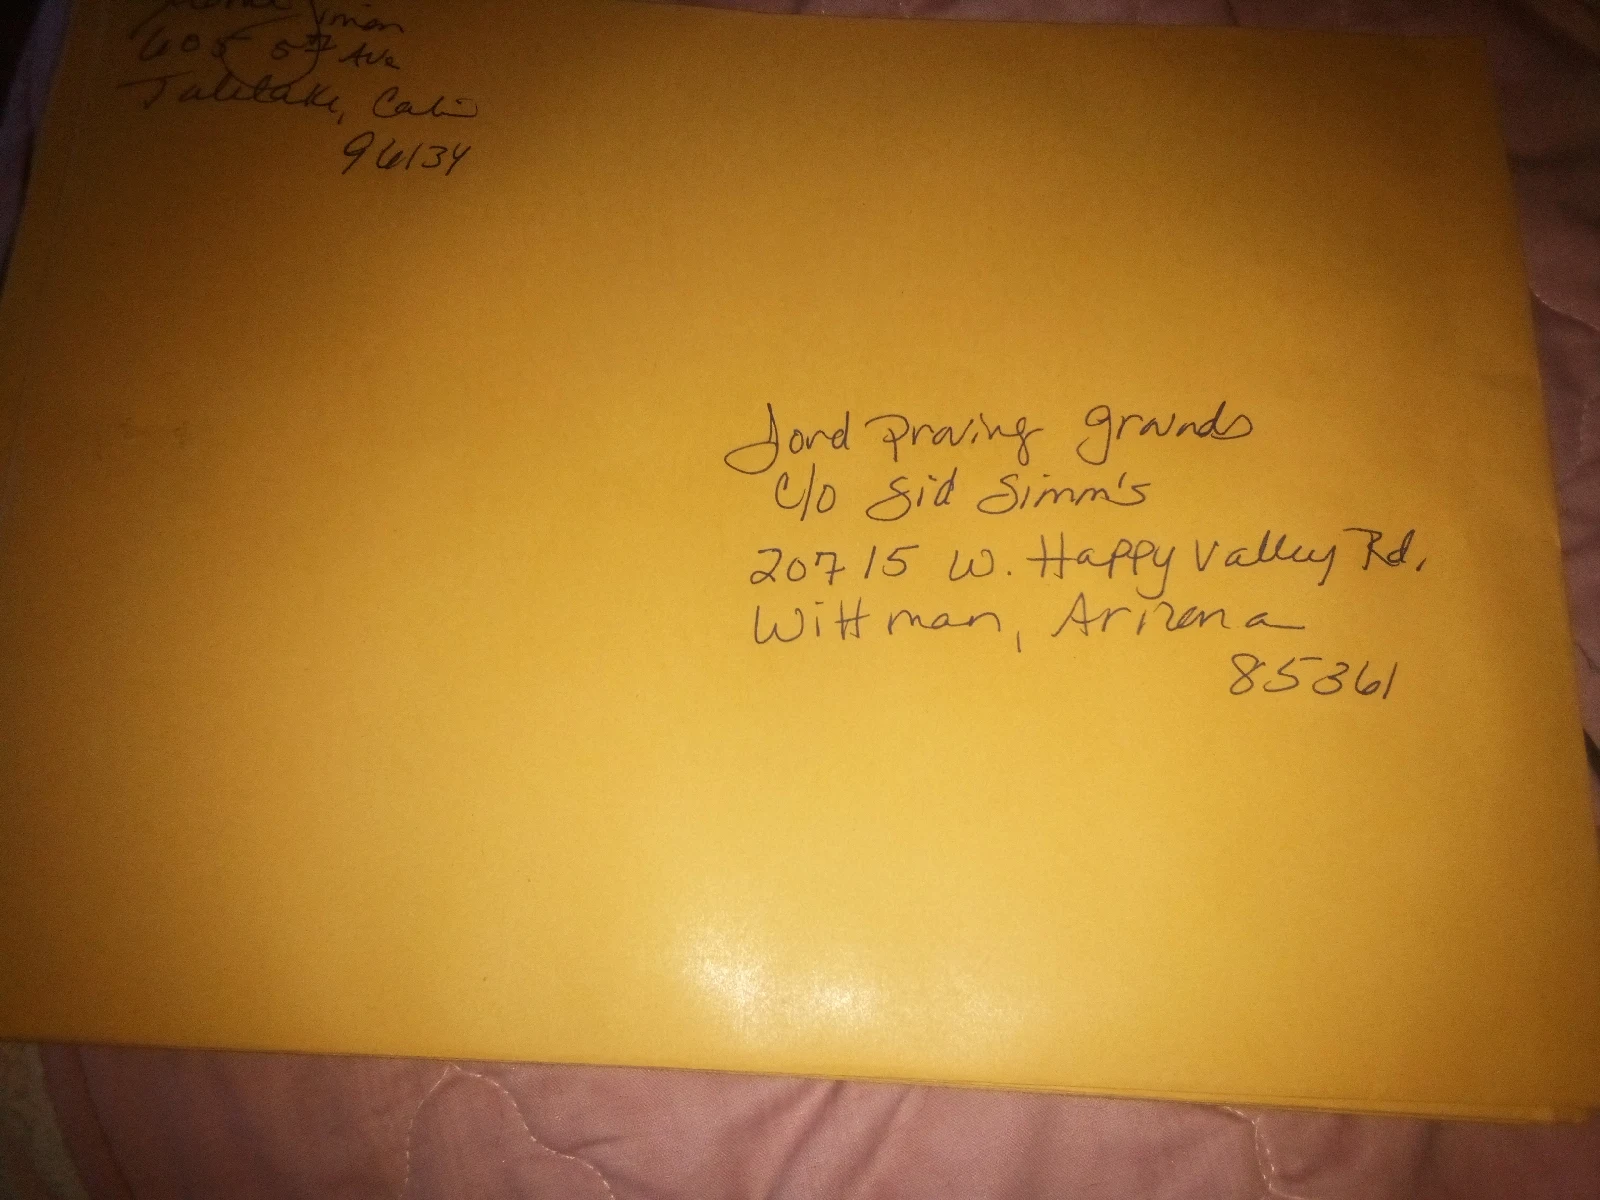 Simon
605 5th Ave
Tulelake, Calif
96134
Ford Proving grounds
C/O Sid Simm's
20715 W. Happy Valley Rd,
Wittman, Arizona
85361